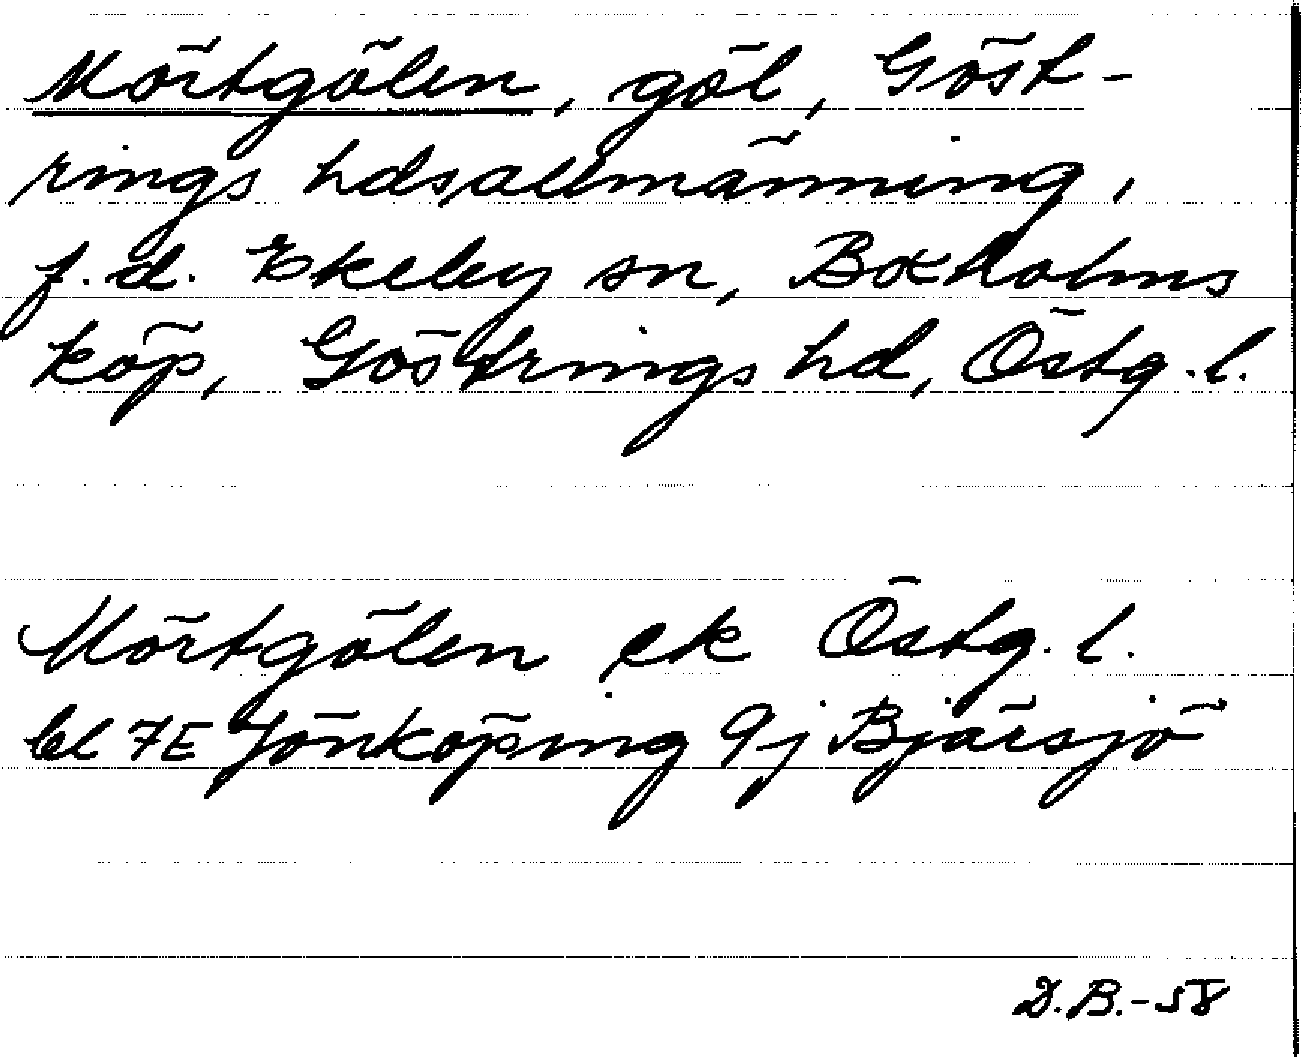 Mörtgölen, göl, Göst-
rings hdsallmänning,
f.d. Ekeby sn, Boxholms
köp, Göstrings hd, Östg.l.
Mörtgölen ek Östg.l.
bl 7E Jönköping 9j Bjärsjö
D.B.-58